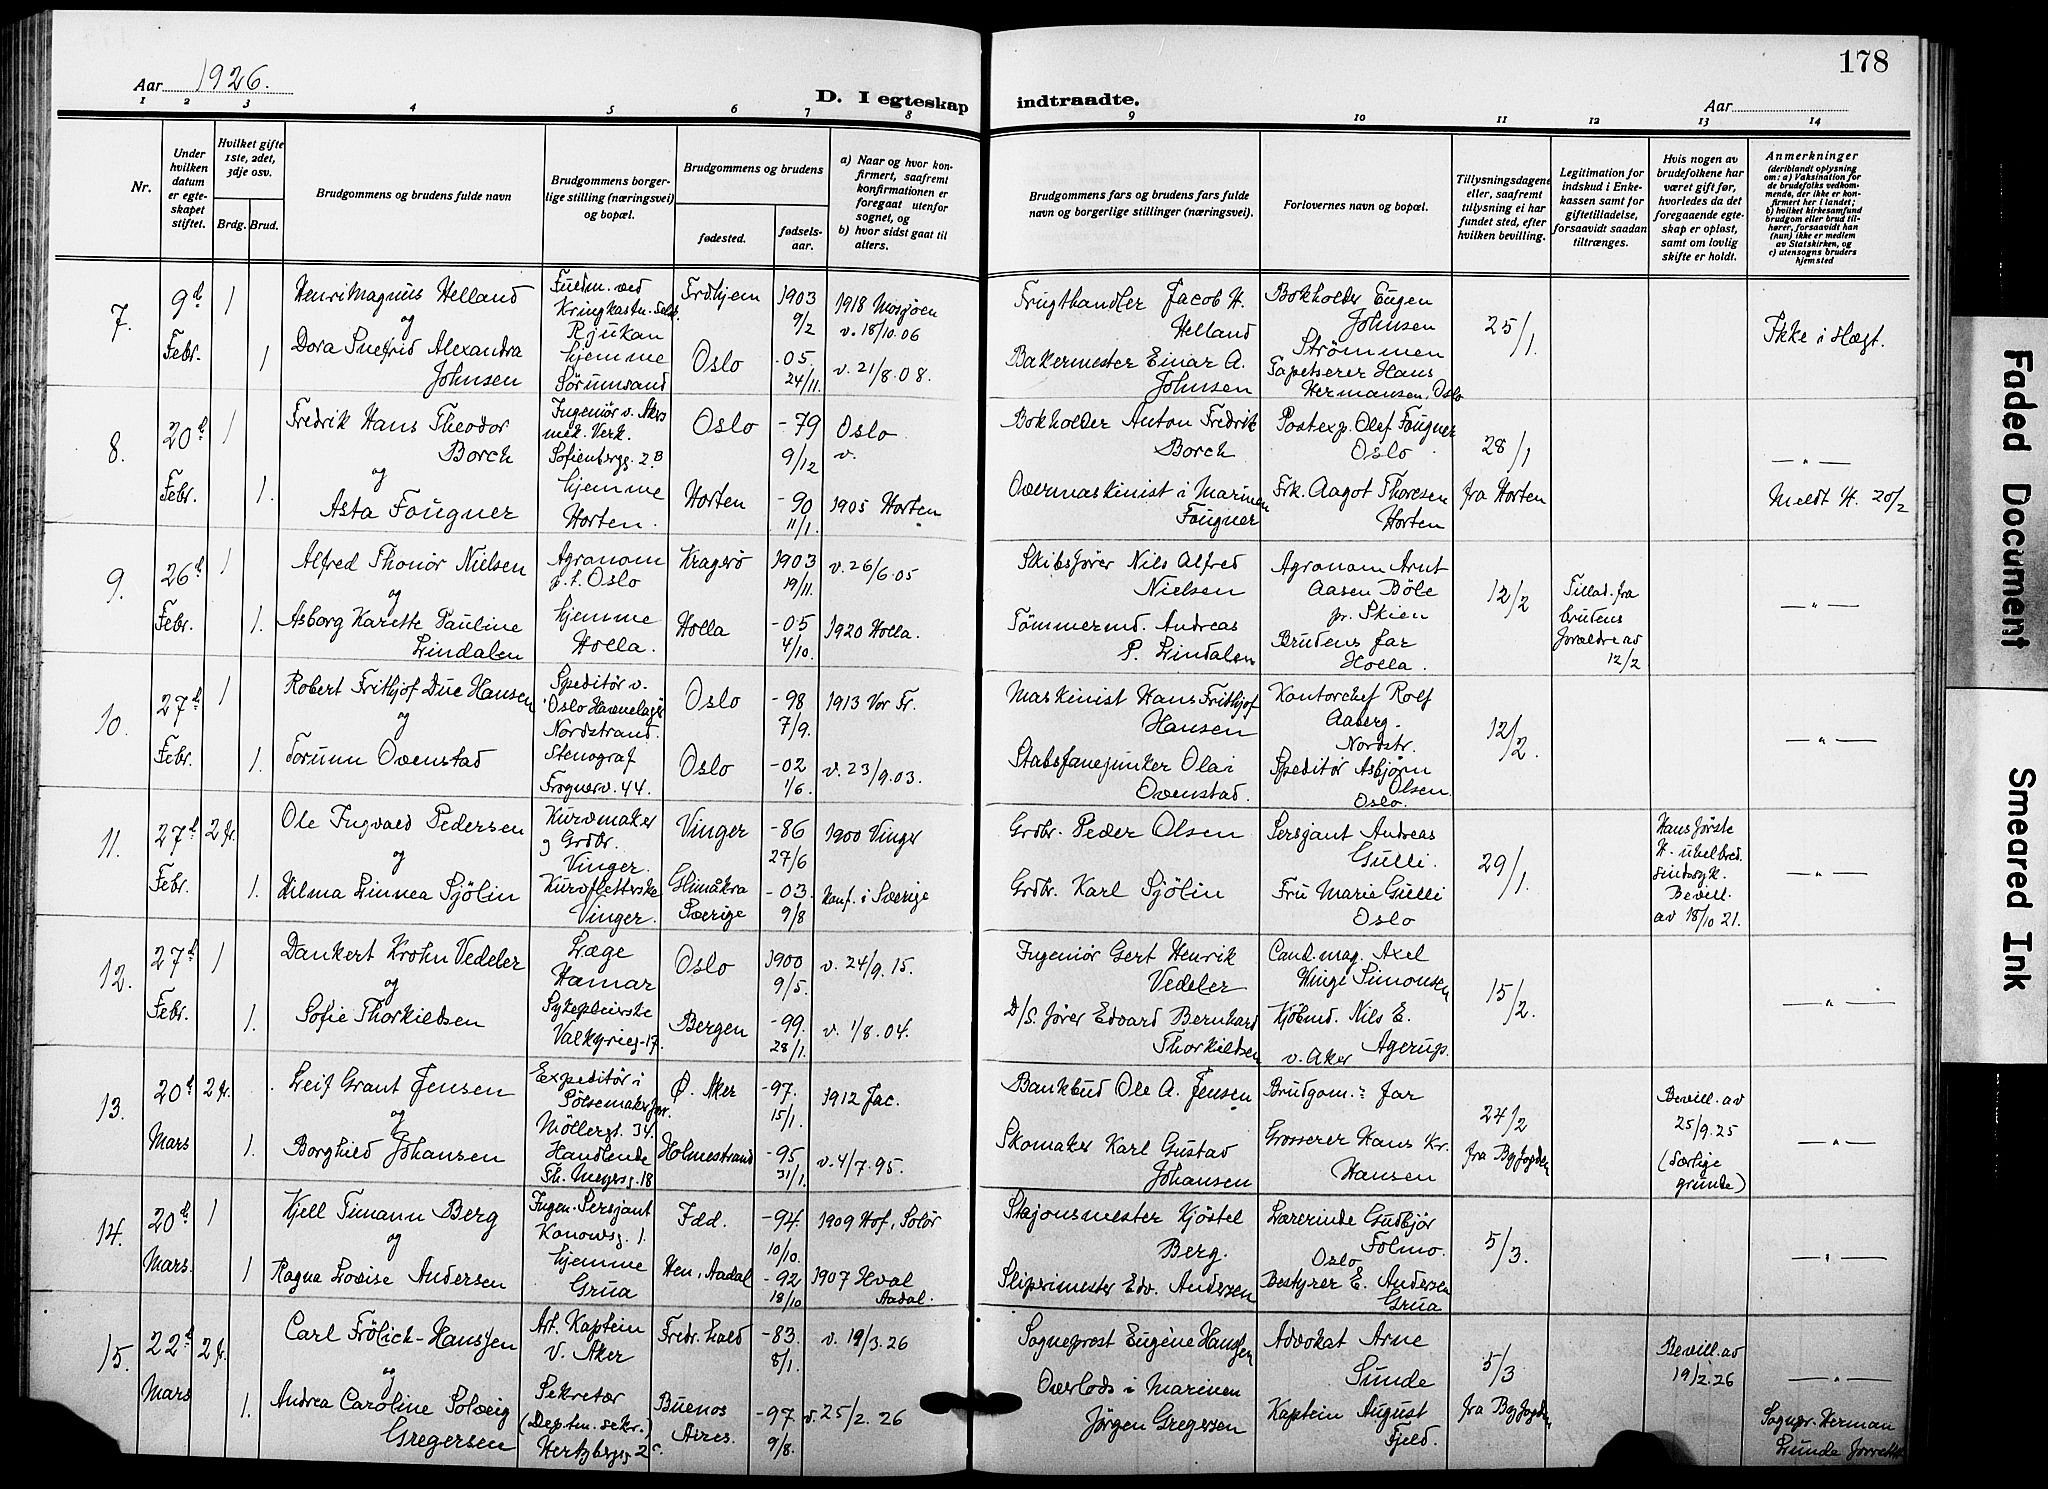 178
Aar 1926.
D. I egteskap indtraadte.
Aar
1 2 3 4 5 6 7 8 9 10 11 12 13 14
Nr.
Under hvilken datum er egteskapet stiftet.
Hvilket gifte 1ste, 2det, 3dje osv.
Brdg. Brud.
Brudgommens og brudens fulde navn
Brudgommens borgerlige stilling (næringsvei) og bopæl.
Brudgommens og brudens
fødested.
fødselsaar.
a) Naar og hvor konfirmert, saafremt konfirmationen er foregaat utenfor sognet, og
b) hvor sidst gaat til alters.
Brudgommens fars og brudens fars fulde navn og borgerlige stillinger (næringsvei).
Forlovernes navn og bopæl.
Tillysningsdagene eller, saafremt tillysning ei har fundet sted, efter hvilken bevilling.
Legitimation for indskud i Enkekassen samt for giftetilladelse, forsaavidt saadan tiltrænges.
Hvis nogen av brudefolkene har været gift før, hvorledes da det foregaaende egteskap er opløst, samt om lovlig skifte er holdt.
Anmerkninger
(deriblandt oplysning om: a) Vaksination for de brudefolks vedkommende, der ikke er konfirmert her i landet; b) hvilket kirkesamfund brudgom eller brud tilhører, forsaavidt han (hun) ikke er medlem av Statskirken, og c) utensogns bruders hjemsted
7. 9d Febr. 1
Henri Magnus Helland
og
Dora Snefrid Alexandra Johnsen 1
Fuldm. ved Kringkastn. Selsk. Rjukan
hjemme Sørumsand
Frdhjem 1903 9/2 1918 Mosjøen v. 18/10.06
Oslo -05 24/11. v. 21/8.08.
Frugthandler Jacob H. Helland
Bakermester Einar A. Johnsen
Bokholder Eugen Johnsen Strömmen
Tapetserer Hans Hermansen, Oslo
25/1.
Ikke i Slægt.
8. 20d Febr. 1
Fredrik Hans Theodor Borch
og
Asta Fougner 1.
Ingeniør v. Akers mek. Verk. Sofienbergg. 2B
hjemme Horten.
Oslo -79 9/12 Oslo v.
Horten -90 11/1. 1905 Horten
Bokholder Anton Fredrik Borch
Overmaskinist i Marinen Fougner
Postexp. Olaf Fougner Oslo
Frk. Aagot Thoresen Horten
28/1 fra Horten
—"—
Meldt H. 20/2
9. 26d Febr. 1
Alfred Thonör Nielsen
og
Asborg Karette Pauline Lindalen 1.
Agronom p.t. Oslo
hjemme Holla.
Kragerö 1903 19/11. v. 26/6.05
Holla -05 4/10. 1920 Holla.
Skibsfører Nils Alfred Nielsen
Tömmermd. Andreas P. Lindalen
Agronom Arnt Aasen Böle pr. Skien
Brudens far Holla.
12/2
Tillad. fra brudens forældre av 12/2
—"—
10. 27d Febr. 1
Robert Frithjof Due Hansen
og
Torunn Ovenstad 1.
Speditör v. Oslo Havnelager Nordstrand.
Stenograf Frognerv. 44.
Oslo -98 7/9. 1913 Vor Fr.
Oslo -02 1/6. v. 23/9.03.
Maskinist Hans Frithjof Hansen
Stabsfanejunker Olai Ovenstad.
Kontorchef Rolf Aaberg. Nordstr.
Speditör Asbjørn Olsen Oslo.
12/2
—"—
11. 27d Febr. 2 fr.
Ole Ingvald Pedersen
og
Hilma Linnea Sjölin 1.
Kurvmaker og Grdbr. Vinger.
Kurvfletterske Vinger.
Vinger -86 27/6 1900 Vinger
Glimåkra Sverige -03 9/8 Konf. i Sverige
Grdbr. Peder Olsen
Grdbr. Karl Sjölin
Sersjant Andreas Gulli.
Fru Marie Gulli Oslo
29/1.
Hans første H. uhelbred. sindssyk. Bevill. av 18/10 21.
—"—
12. 27d Febr. 1
Dankert Krohn Vedeler
og
Sofie Thorkildsen 1.
Læge Hamar
Sykepleierske Valkyrieg. 17.
Oslo 1900 9/5. v. 24/9.15.
Bergen -99. 28/1. v. 1/8.04.
Ingeniør Gert Henrik Vedeler
D/S. fører Edvard Bernhard Thorkildsen
Cand. mag. Axel Winge Simonsen
Kjøbmd. Nils E. Agerup. v. Aker
15/2.
—"—
13. 20d Mars 2 fr.
Leif Grant Jensen
og
Borghild Johansen 1.
Expeditør i Pölsemakerforr. Möllergt. 34.
Handlende Th. Meyersg. 18
Ø. Aker -97. 15/1. 1912 Jac.
Holmestrand -95 31/1. v. 4/7.95.
Bankbud Ole A. Jensen
Skomaker Karl Gustad Johansen
Brudgom: far
Grosserer Hans Kr. Hansen
24/2 fra Byfogden
Bevill. av 25/9.25 (særlige grunde)
—"—
14. 20d Mars. 1
Kjell Timann Berg
og
Ragna Lovise Andersen 1
Ingen. Sersjant Konowsg. 1.
hjemme Grua
Idd. -94 10/10. 1909 Hof, Solör
Hen, Aadal -92 18/10 1907 Hval Aadal.
Stasjonsmester Kjöstel Berg.
Sliperimester Edv. Andersen
Lærerinde Gudbjör Folmo. Oslo
Bestyrer E. Andersen Grua
5/3
—"—
15. 22d Mars 2 fr.
Carl Frölich-Hanssen
og
Andrea Caroline Solveig Gregersen 1.
Art. Kaptein V. Aker
Sekretær (Deptm. sekr.) Hertzbergsg. 2c.
Fredr.hald -83. 8/1. v. 19/3.26
Buenos Aires. -97 9/8. v. 25/2.26
Sogneprost Eugène Hanssen
Overlods i Marinen Jörgen Gregersen
Advokat Arne Sunde
Kaptein August Fjeld.
5/3 fra Byfogden
Bevill. av 19/2.26
—"—
Sognepr. Herman Lunde forrettet
Faded Document
Smeared Ink